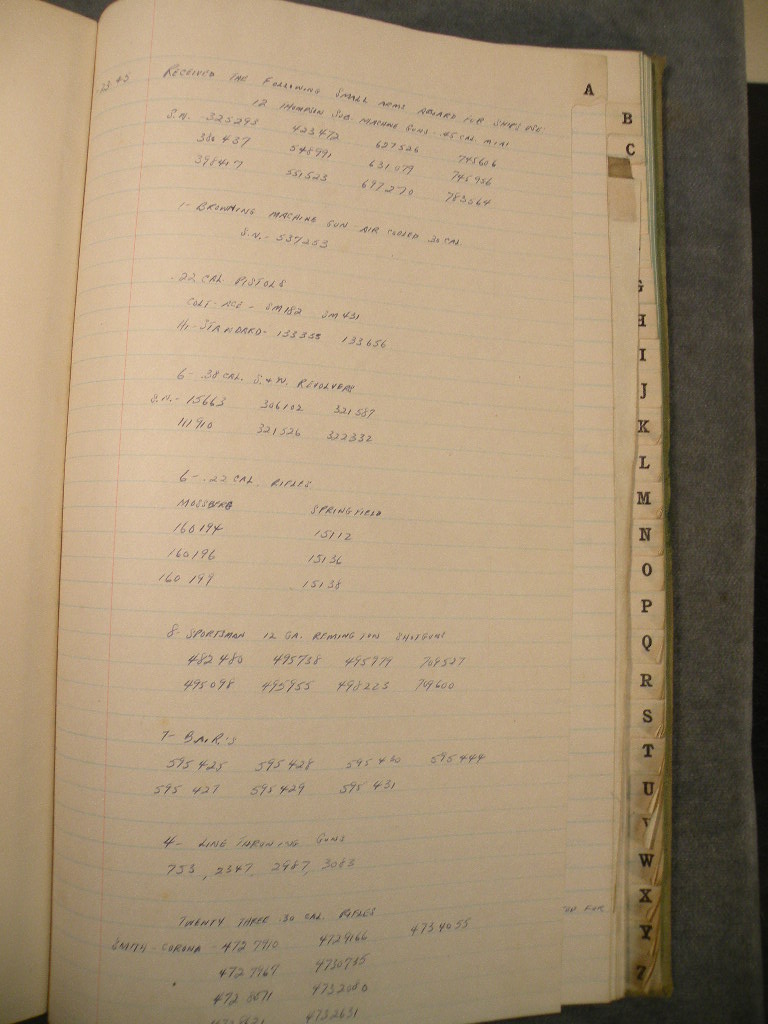 23 45 RECEIVED THE FOLLOWING SMALL ARMS ABOARD FOR SHIPS USE
12 THOMPSON SUB-MACHINE GUNS .45 CAL. M1A1
S.N. - 325293 423472 627526 745606
380437 548991 631079 745956
398417 551523 697270 783064
1- BROWNING MACHINE GUN AIR COOLED 30 CAL.
S.N. - 537253
.22 CAL PISTOLS
COLT-ACE - SM182 SM431
HI-STANDARD- 133353 133656
6- 38 CAL. S.&W. REVOLVERS
S.N. - 15663 306102 321587
111910 321526 322332
6- .22 CAL. RIFLES
MOSSBERG SPRINGFIELD
160194 15112
160196 15136
160199 15138
8- SPORTSMAN 12 GA. REMINGTON SHOTGUNS
482480 495738 495979 709527
495098 495955 498223 709600
7- B.A.R.'S
595425 595428 595430 595444
595427 595429 595431
4- LINE THROWING GUNS
753, 2347, 2987, 3083
TWENTY THREE 30 CAL. RIFLES
SMITH-CORONA - 4727910 4729166 4734055
4727967 4730735
4728071
4732631
A
B
C
G
H
I
J
K
L
M
N
O
P
Q
R
S
T
U
V
W
X
Y
Z